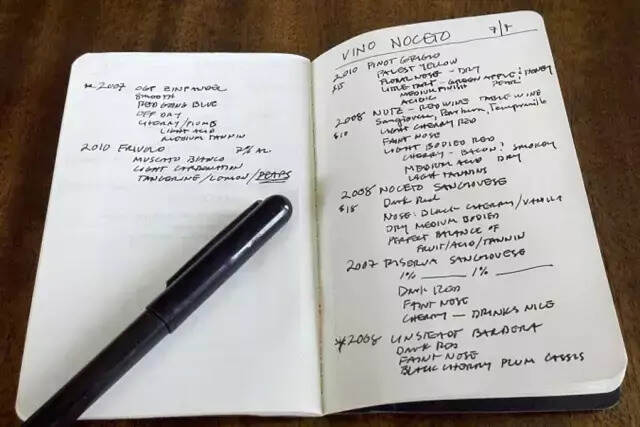 * 2007 OGP ZINFANDEL
SMOOTH
RED GOING BLUE
OFF DAY
CHERRY/PLUMB
LIGHT ACID
MEDIUM TANNIN
2010 FRIVOLO 7% AL.
MUSCATO BIANCO
LIGHT CARBONATION
TANGERINE/LEMON/PEARS
VINO NOCETO 7/9
2010 PINOT GRIGIO
$15 PALEST YELLOW
FLORAL NOSE - DRY
LITTLE TART - GREEN APPLE & HONEY
MEDIUM FINISH PEAR!
ACIDIC
2008 NUTZ - RED WINE TABLE WINE
Sangiovese, Barbera, Tempranillo
$10 LIGHT CHERRY RED
FAINT NOSE
LIGHT BODIED RED
CHERRY - BACON? SMOKEY
MEDIUM ACID DRY
LIGHT TANNINS
2008 NOCETO SANGIOVESE
$18 DARK RED
NOSE: BLACK CHERRY/VANILLA
DRY MEDIUM BODIED
PERFECT BALANCE OF
FRUIT/ACID/TANNIN
2007 RISERVA SANGIOVESE
1% ______ 1% ______
DARK RED
FAINT NOSE
CHERRY — DRINKS NICE
* 2008 LINSTEADT BARBERA
DARK RED
FAINT NOSE
BLACK CHERRY PLUM CASSIS